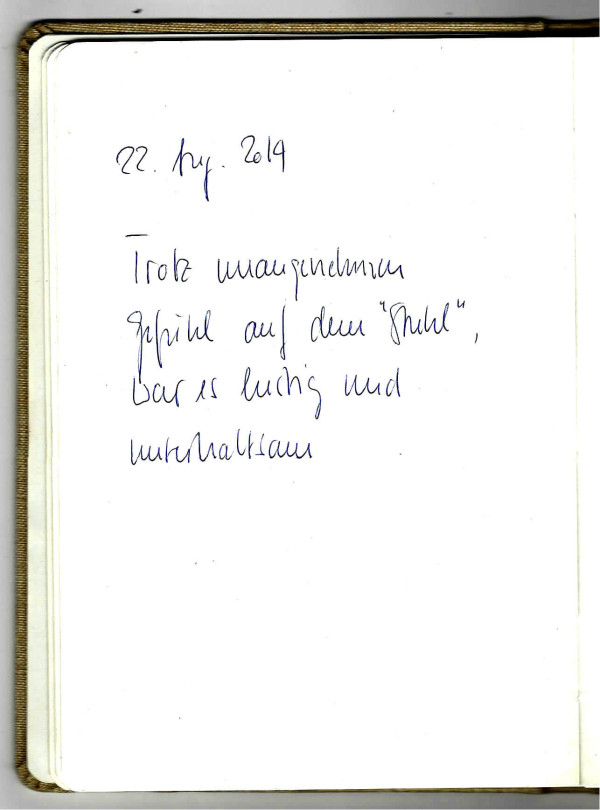 22. Aug. 2019
—
Trotz unangenehmem
Gefühl auf dem "Stuhl",
war es lustig und
unterhaltsam